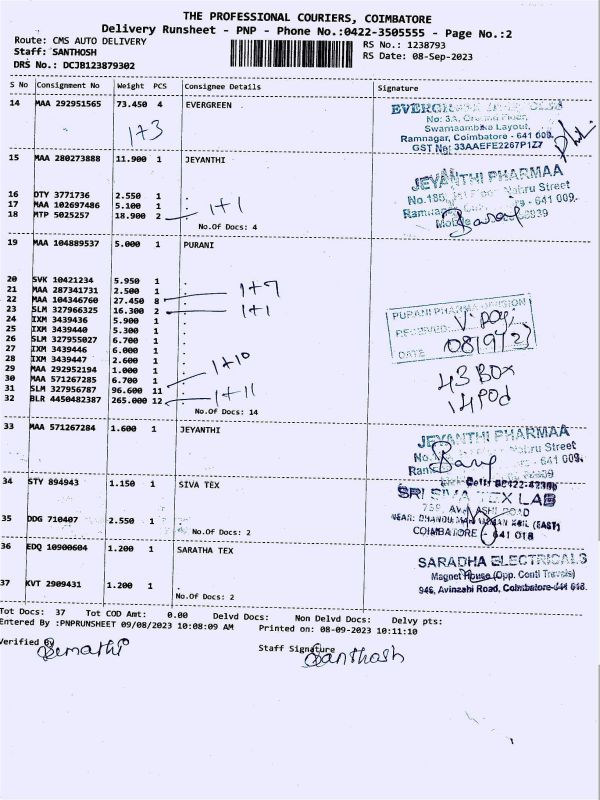 THE PROFESSIONAL COURIERS, COIMBATORE
Delivery Runsheet - PNP - Phone No.:0422-3505555 - Page No.:2
Route: CMS AUTO DELIVERY
RS No.: 1238793
Staff: SANTHOSH
RS Date: 08-Sep-2023
DRS No.: DCJB123879302
S No Consignment No Weight PCS Consignee Details Signature
14 MAA 292951565 73.450 4 EVERGREEN
1+3
No: 3A,
Swarnaambike Layout,
Ramnagar, Coimbatore - 641 009.
GST No: 33AAEFE2267P1Z7
15 MAA 280273888 11.900 1 JEYANTHI
JEYANTHI PHARMAA
No.185, Nehru Street
- 641 009.
16 DTY 3771736 2.550 1 .
17 MAA 102697486 5.100 1 .
18 MTP 5025257 18.900 2 . 1+1
No.Of Docs: 4
19 MAA 104889537 5.000 1 PURANI
20 SVK 10421234 5.950 1 .
21 MAA 287341731 2.500 1 .
22 MAA 104346760 27.450 8 . 1+7
23 SLM 327966325 16.300 2 . 1+1
24 IXM 3439436 5.900 1 .
25 IXM 3439440 5.300 1 .
26 SLM 327955027 6.700 1 .
27 IXM 3439446 6.000 1 .
28 IXM 3439447 2.600 1 .
29 MAA 292952194 1.000 1 .
30 MAA 571267285 6.700 1 .
31 SLM 327956787 96.600 11 . 1+10
32 BLR 4450482387 265.000 12 . 1+11
No.Of Docs: 14
PURANI PHARMA DIVISION
RECEIVED:
DATE 08/9/23
43 BOX
14 POD
33 MAA 571267284 1.600 1 JEYANTHI
JEYANTHI PHARMAA
Nehru Street
- 641 009.
34 STY 894943 1.150 1 SIVA TEX
SRI SIVA TEX LAB
759, AVINASHI ROAD
(EAST)
COIMBATORE - 641 018
35 DDG 710407 2.550 1 .
No.Of Docs: 2
36 EDQ 10900604 1.200 1 SARATHA TEX
SARADHA ELECTRICALS
Magnet House (Opp. Conti Travels)
946, Avinashi Road, Coimbatore-641 018.
37 KVT 2909431 1.200 1 .
No.Of Docs: 2
Tot Docs: 37 Tot COD Amt: 0.00 Delvd Docs: Non Delvd Docs: Delvy pts:
Entered By :PNPRUNSHEET 09/08/2023 10:08:09 AM Printed on: 08-09-2023 10:11:10
Verified By
Staff Signature
Santhosh